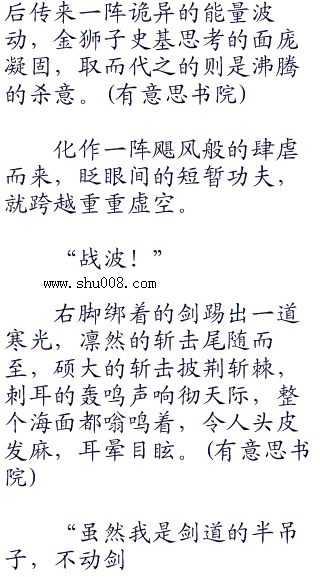 后传来一阵诡异的能量波
动，金狮子史基思考的面庞
凝固，取而代之的则是沸腾
的杀意。(有意思书院)
化作一阵飓风般的肆虐
而来，眨眼间的短暂功夫，
就跨越重重虚空。
“战波！”
www.shu008.com
右脚绑着的剑踢出一道
寒光，凛然的斩击尾随而
至，硕大的斩击披荆斩棘，
刺耳的轰鸣声响彻天际，整
个海面都嗡鸣着，令人头皮
发麻，耳晕目眩。(有意思书
院)
“虽然我是剑道的半吊
子，不动剑